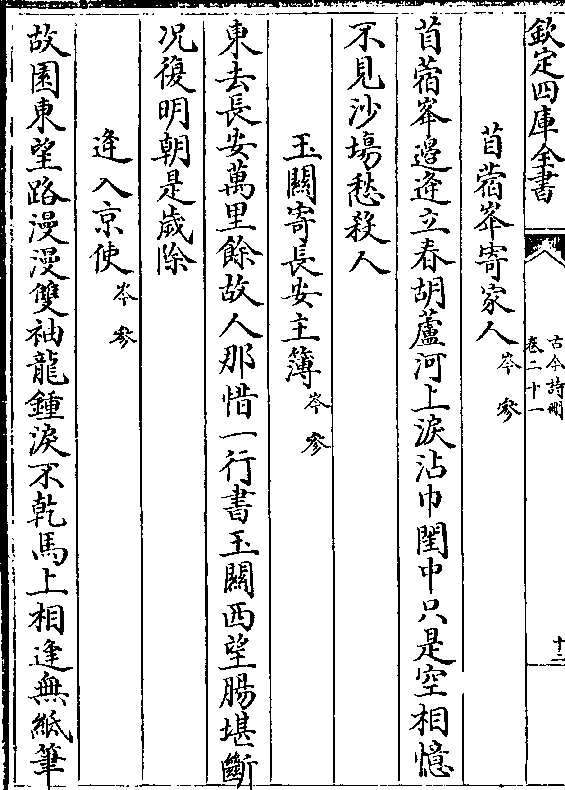 欽定四庫全書
古今詩刪
卷二十一
十二
苜蓿峯寄家人 岑參
苜蓿峯邊逢立春胡蘆河上淚沾巾閨中只是空相憶
不見沙塲愁殺人
玉關寄長安主簿 岑參
東去長安萬里餘故人那惜一行書玉關西望腸堪斷
况復明朝是歲除
逢入京使 岑參
故園東望路漫漫雙袖龍鍾淚不乾馬上相逢無紙筆